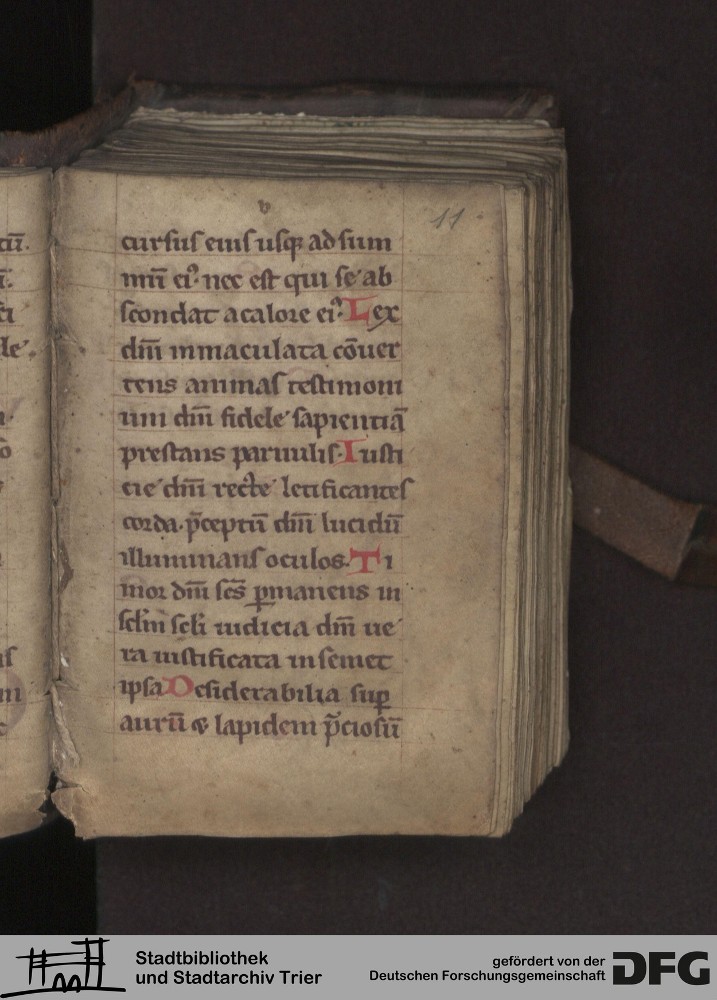 v
11
cursus eius usq; ad sum
mū ei᷒ nec est qui se ab
scondat a calore ei᷒ Lex
dm̄ inmaculata cōuer
tens animas testimoni
um dm̄ fidele sapientiā
prestans paruulis. Iusti
cie dm̄ recte letificantes
corda. p̄ceptū dm̄ lucidū
illuminans oculos. Ti
mor dm̄ scs̄ ꝑmanens in
sclm̄ scli iudicia dm̄ ue
ra iustificata in semet
ipsa Desiderabilia suꝑ
aurū & lapidem p̄ciosū
Stadtbibliothek
und Stadtarchiv Trier
gefördert von der
Deutschen Forschungsgemeinschaft
DFG